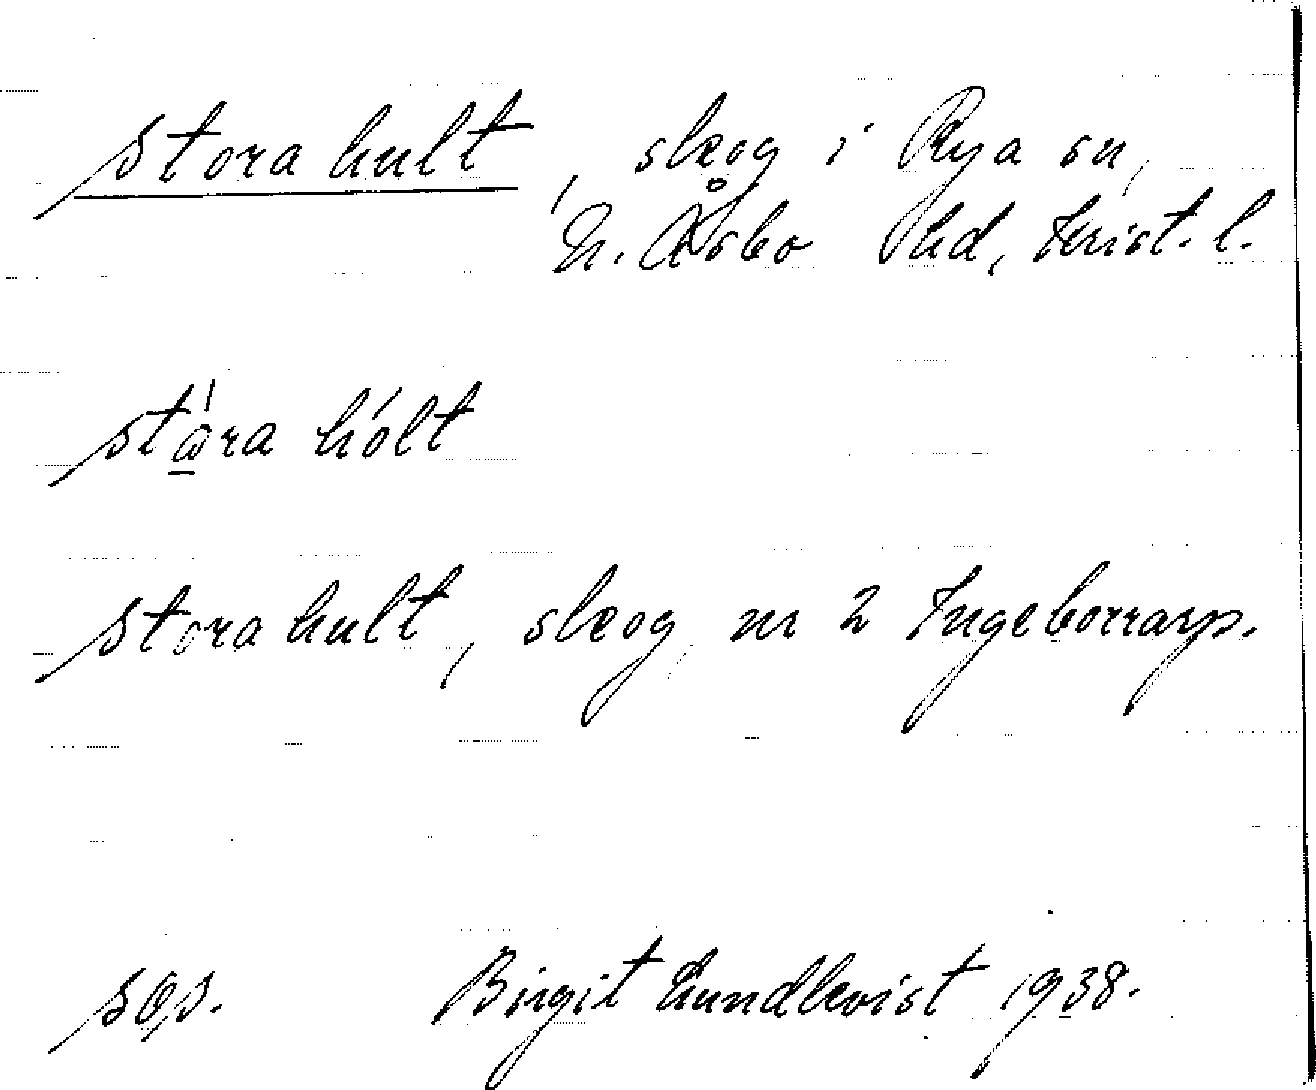 Stora hult, skog i Rya sn,
N. Åsbo hd, Krist. l.
stὼ̱ra hólt
Stora hult, skog, nr 2 Ingeborrarp.
Birgit Lundkvist 1938.